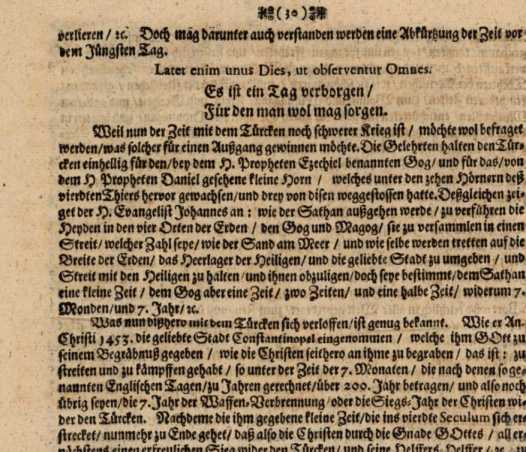 (30)
verlieren / ꝛc. Doch mag darunter auch verstanden werden eine Abkürtzung der Zeit vor
dem Jüngsten Tag.
Latet enim unus Dies, ut observentur Omnes.
Es ist ein Tag verborgen /
Für den man wol mag sorgen.
Weil nun der Zeit mit dem Türcken noch schwerer Krieg ist / möchte wol befraget
werden/was solcher für einen Außgang gewinnen möchte. Die Gelehrten halten den Tür-
cken einhellig für den/bey dem H. Propheten Ezechiel benannten Gog/ und für das/von
dem H Propheten Daniel gesehene kleine Horn / welches unter den zehen Hörnern deß
vierdten Thiers hervor gewachsen/und drey von disen weggestossen hatte. Deßgleichen zei-
get der H. Evangelist Johannes an: wie der Sathan außgehen werde / zu verführen die
Heyden in den vier Orten der Erden / den Gog und Magog/ sie zu versammlen in einen
Streit/ welcher Zahl seye/ wie der Sand am Meer / und wie selbe werden tretten auf die
Breite der Erden/ das Heerlager der Heiligen/ und die geliebte Stadt zu umgeben / und
Streit mit den Heiligen zu halten/und ihnen obzuligen/doch seye bestimmt/dem Sathan
eine kleine Zeit / dem Gog aber eine Zeit/ zwo Zeiten/ und eine halbe Zeit/ widerum 7.
Monden/und 7. Jahr/ꝛc.
Was nun dißhero mit dem Türcken sich verloffen/ist genug bekannt. Wie er An.
Christi 1453. die geliebte Stadt Constantinopal eingenommen / welche ihm GOtt zu
seinem Begräbnuß gegeben / wie die Christen seithero an ihme zu begraben / das ist: zu
streiten und zu kämpffen gehabt / so unter der Zeit der 7. Monaten / die nach denen so ge-
nannten Englischen Tagen/zu Jahren gerechnet/über 200. Jahr betragen/ und also noch
übrig seyen/die 7. Jahr der Waffen-Verbrennung/oder die Siegs-Jahr der Christen wi-
der den Türcken. Nachdeme die ihm gegebene kleine Zeit/die ins vierdte Seculum sich er-
strecket/ nunmehr zu Ende gehet/ daß also die Christen durch die Gnade GOttes / all er-
nächstens einen erfreulichen Sieg wider den Türcken / und seine Helffers-Helffer / ꝛc.